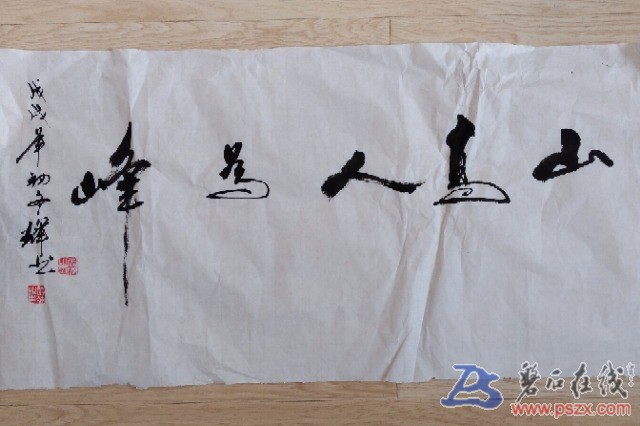 山高人為峰
戊戌年初文辉书
磐石在线
www.pszx.com